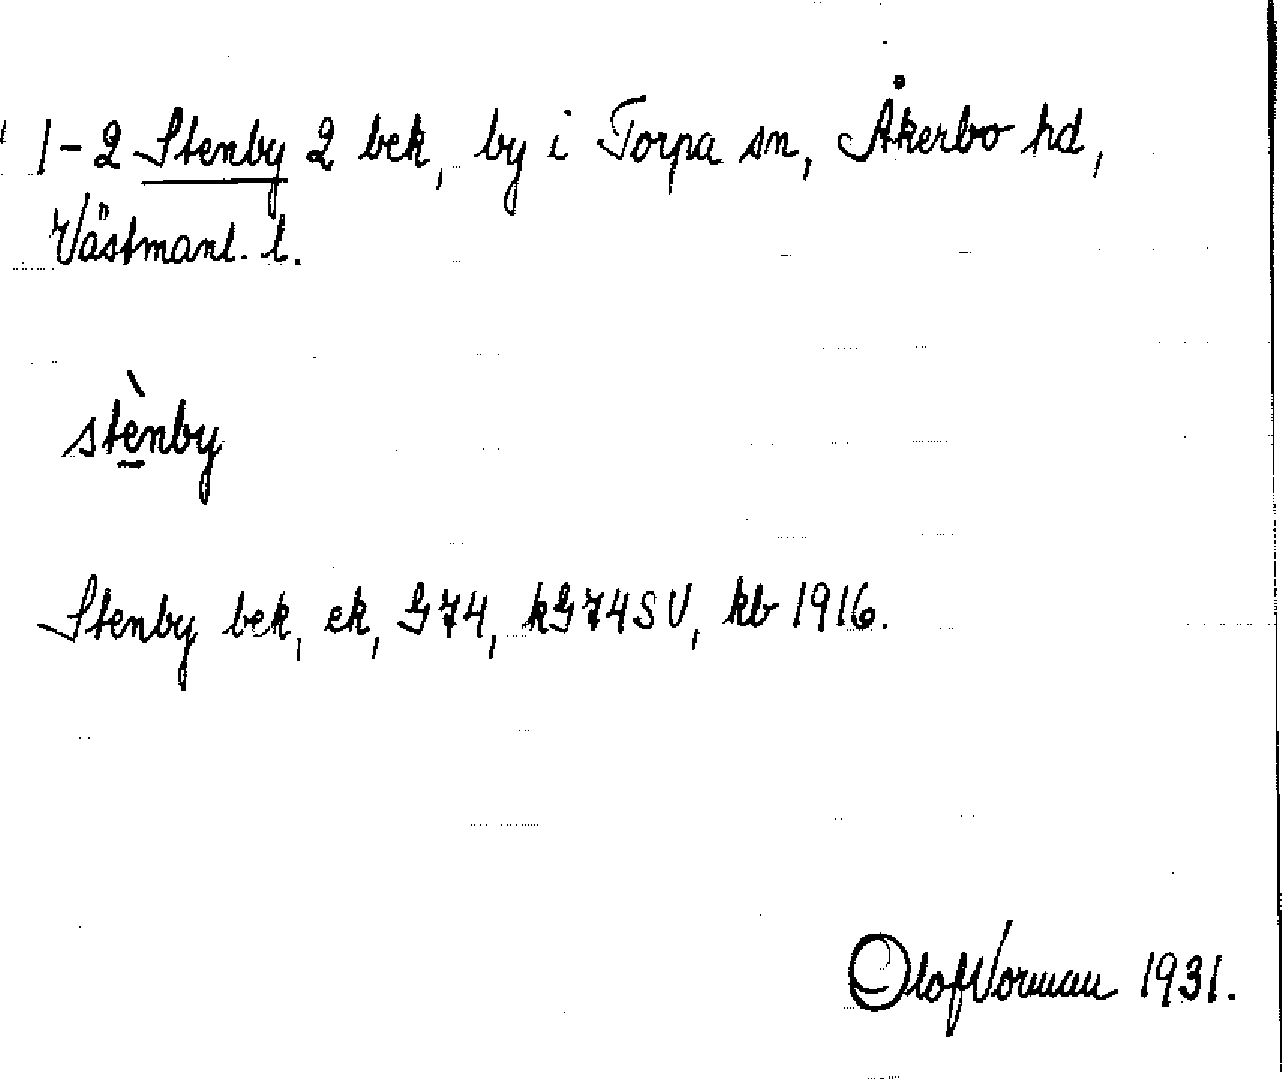 1-2 Stenby 2 bek, by i Torpa sn, Åkerbo hd,
Västmanl. l.
stènby
Stenby bek, ek, G74, kG74SV, kb 1916.
Olof Norman 1931.